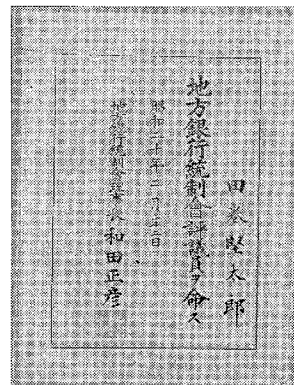 田巻堅太郎
地方銀行統制會評議員ヲ命ス
昭和二十年三月三十日
地方銀行統制會理事長 和田正彦